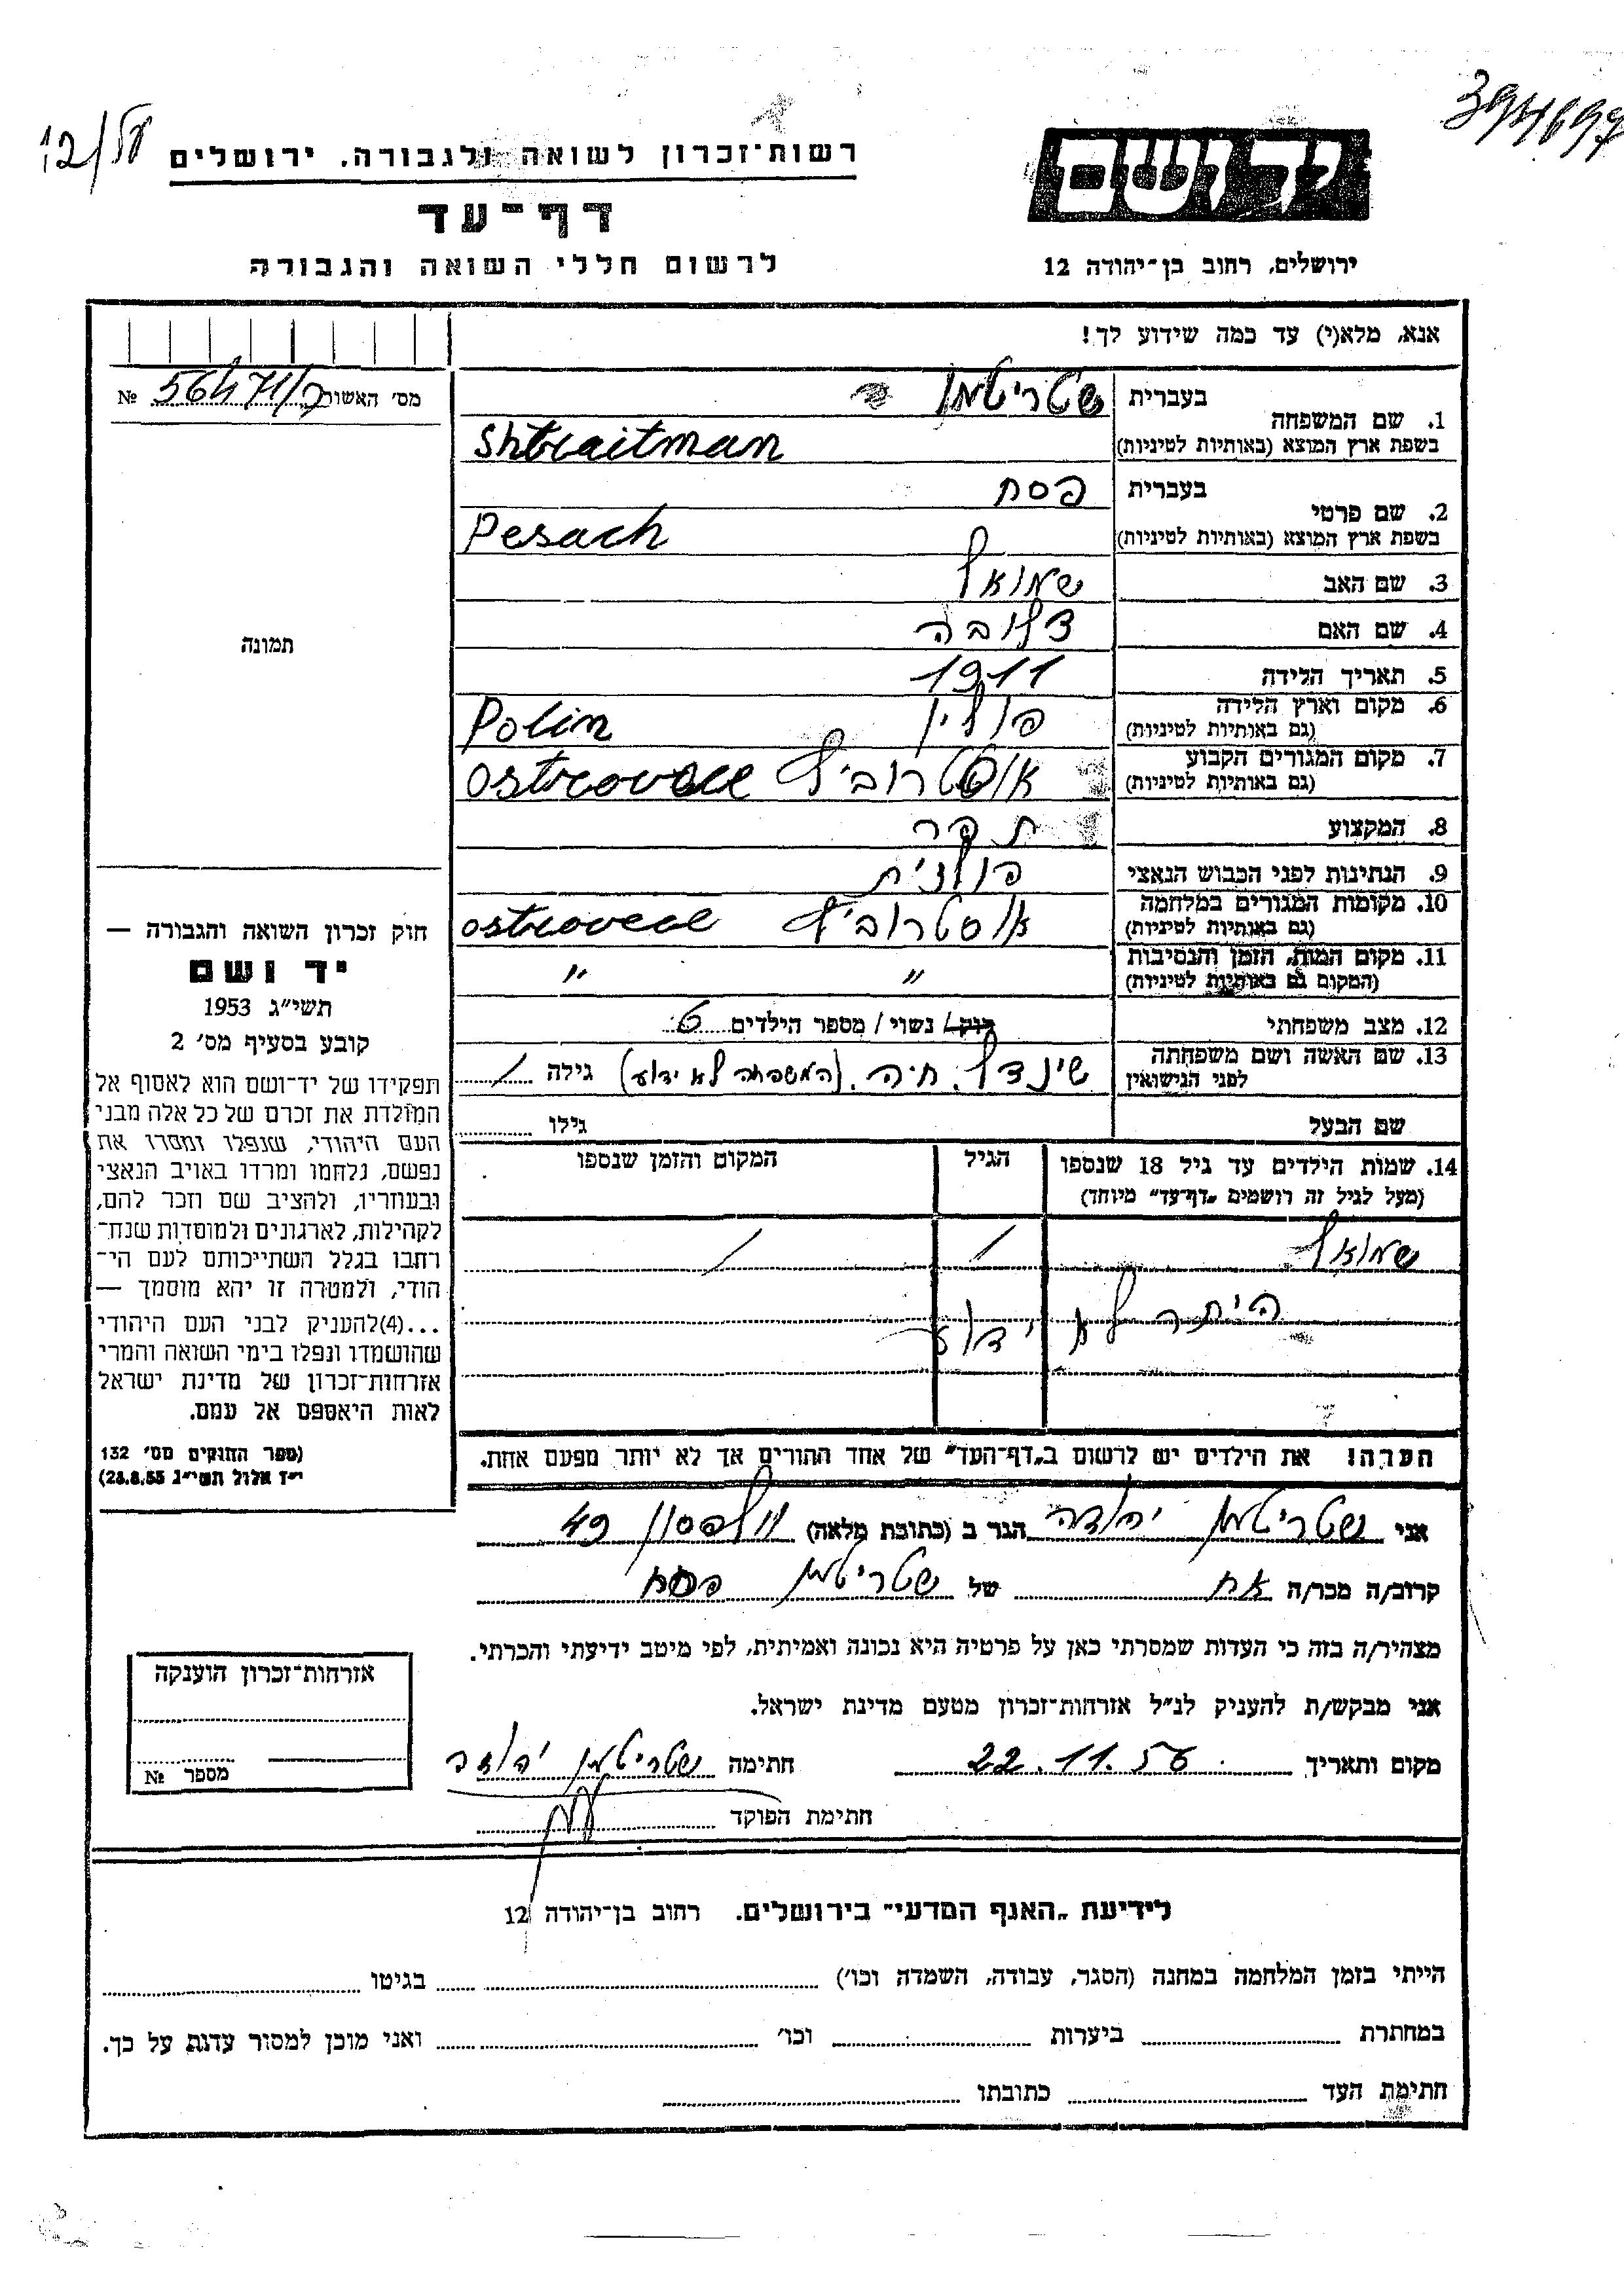 394697
12/
רשות־זכרון לשואה ולגבורה. ירושלים
יד ושם
דף־עד
לרשום חללי השואה והגבורה
ירושלים, רחוב בן־יהודה 12
אנא, מלא(י) עד כמה שידוע לך!
מס׳ האשור № 56471/ק
1. שם המשפחה
בעברית שטריטמן
בשפת ארץ המוצא (באותיות לטיניות) Shtraitman
2. שם פרטי
בעברית פסח
בשפת ארץ המוצא (באותיות לטיניות) Pesach
3. שם האב שמואל
4. שם האם
5. תאריך הלידה 1911
6. מקום וארץ הלידה פולין Polin
(גם באותיות לטיניות)
7. מקום המגורים הקבוע אוסטרוביץ ostrovece
(גם באותיות לטיניות)
8. המקצוע תפר
9. הנתינות לפני הכבוש הנאצי פולנית
10. מקומות המגורים במלחמה אוסטרוביץ ostrovece
(גם באותיות לטיניות)
11. מקום המות, הזמן והנסיבות " "
(המקום גם באותיות לטיניות)
12. מצב משפחתי רוק / נשוי / מספר הילדים 6
13. שם האשה ושם משפחתה שינדל, חיה. (המשפחה לא ידוע) גילה /
לפני הנישואין
שם הבעל גילו
14. שמות הילדים עד גיל 18 שנספו הגיל המקום והזמן שנספו
(מעל לגיל זה רושמים „דף־עד״ מיוחד)
שמואל / /
היתר לא ידוע
הערה! את הילדים יש לרשום ב„דף־העד״ של אחד ההורים אך לא יותר מפעם אחת.
תמונה
חוק זכרון השואה והגבורה —
יד ושם
תשי״ג 1953
קובע בסעיף מס׳ 2
תפקידו של יד־ושם הוא לאסוף אל
המולדת את זכרם של כל אלה מבני
העם היהודי, שנפלו ומסרו את
נפשם, נלחמו ומרדו באויב הנאצי
ובעוזריו, ולהציב שם וזכר להם,
לקהילות, לארגונים ולמוסדות שנח־
רבו בגלל השתייכותם לעם הי־
הודי, ולמטרה זו יהא מוסמך —
...(4)להעניק לבני העם היהודי
שהושמדו ונפלו בימי השואה והמרי
אזרחות־זכרון של מדינת ישראל
לאות היאספם אל עמם.
(ספר החוקים מס׳ 132
י״ז אלול תשי״ג 28.8.53)
אני שטריטמן יהודה הגר ב (כתובת מלאה) וולפסון 49
קרוב/ה מכר/ה אח של שטריטמן פסח
מצהיר/ה בזה כי העדות שמסרתי כאן על פרטיה היא נכונה ואמיתית, לפי מיטב ידיעתי והכרתי.
אני מבקש/ת להעניק לנ״ל אזרחות־זכרון מטעם מדינת ישראל.
מקום ותאריך 22.11.56 חתימה שטריטמן יהודה
חתימת הפוקד
אזרחות־זכרון הוענקה
מספר №
לידיעת „האגף המדעי״ בירושלים. רחוב בן־יהודה 12
הייתי בזמן המלחמה במחנה (הסגר, עבודה, השמדה וכו׳) בגיטו
במחתרת ביערות וכו׳ ואני מוכן למסור עדות על כך.
חתימת העד כתובתו